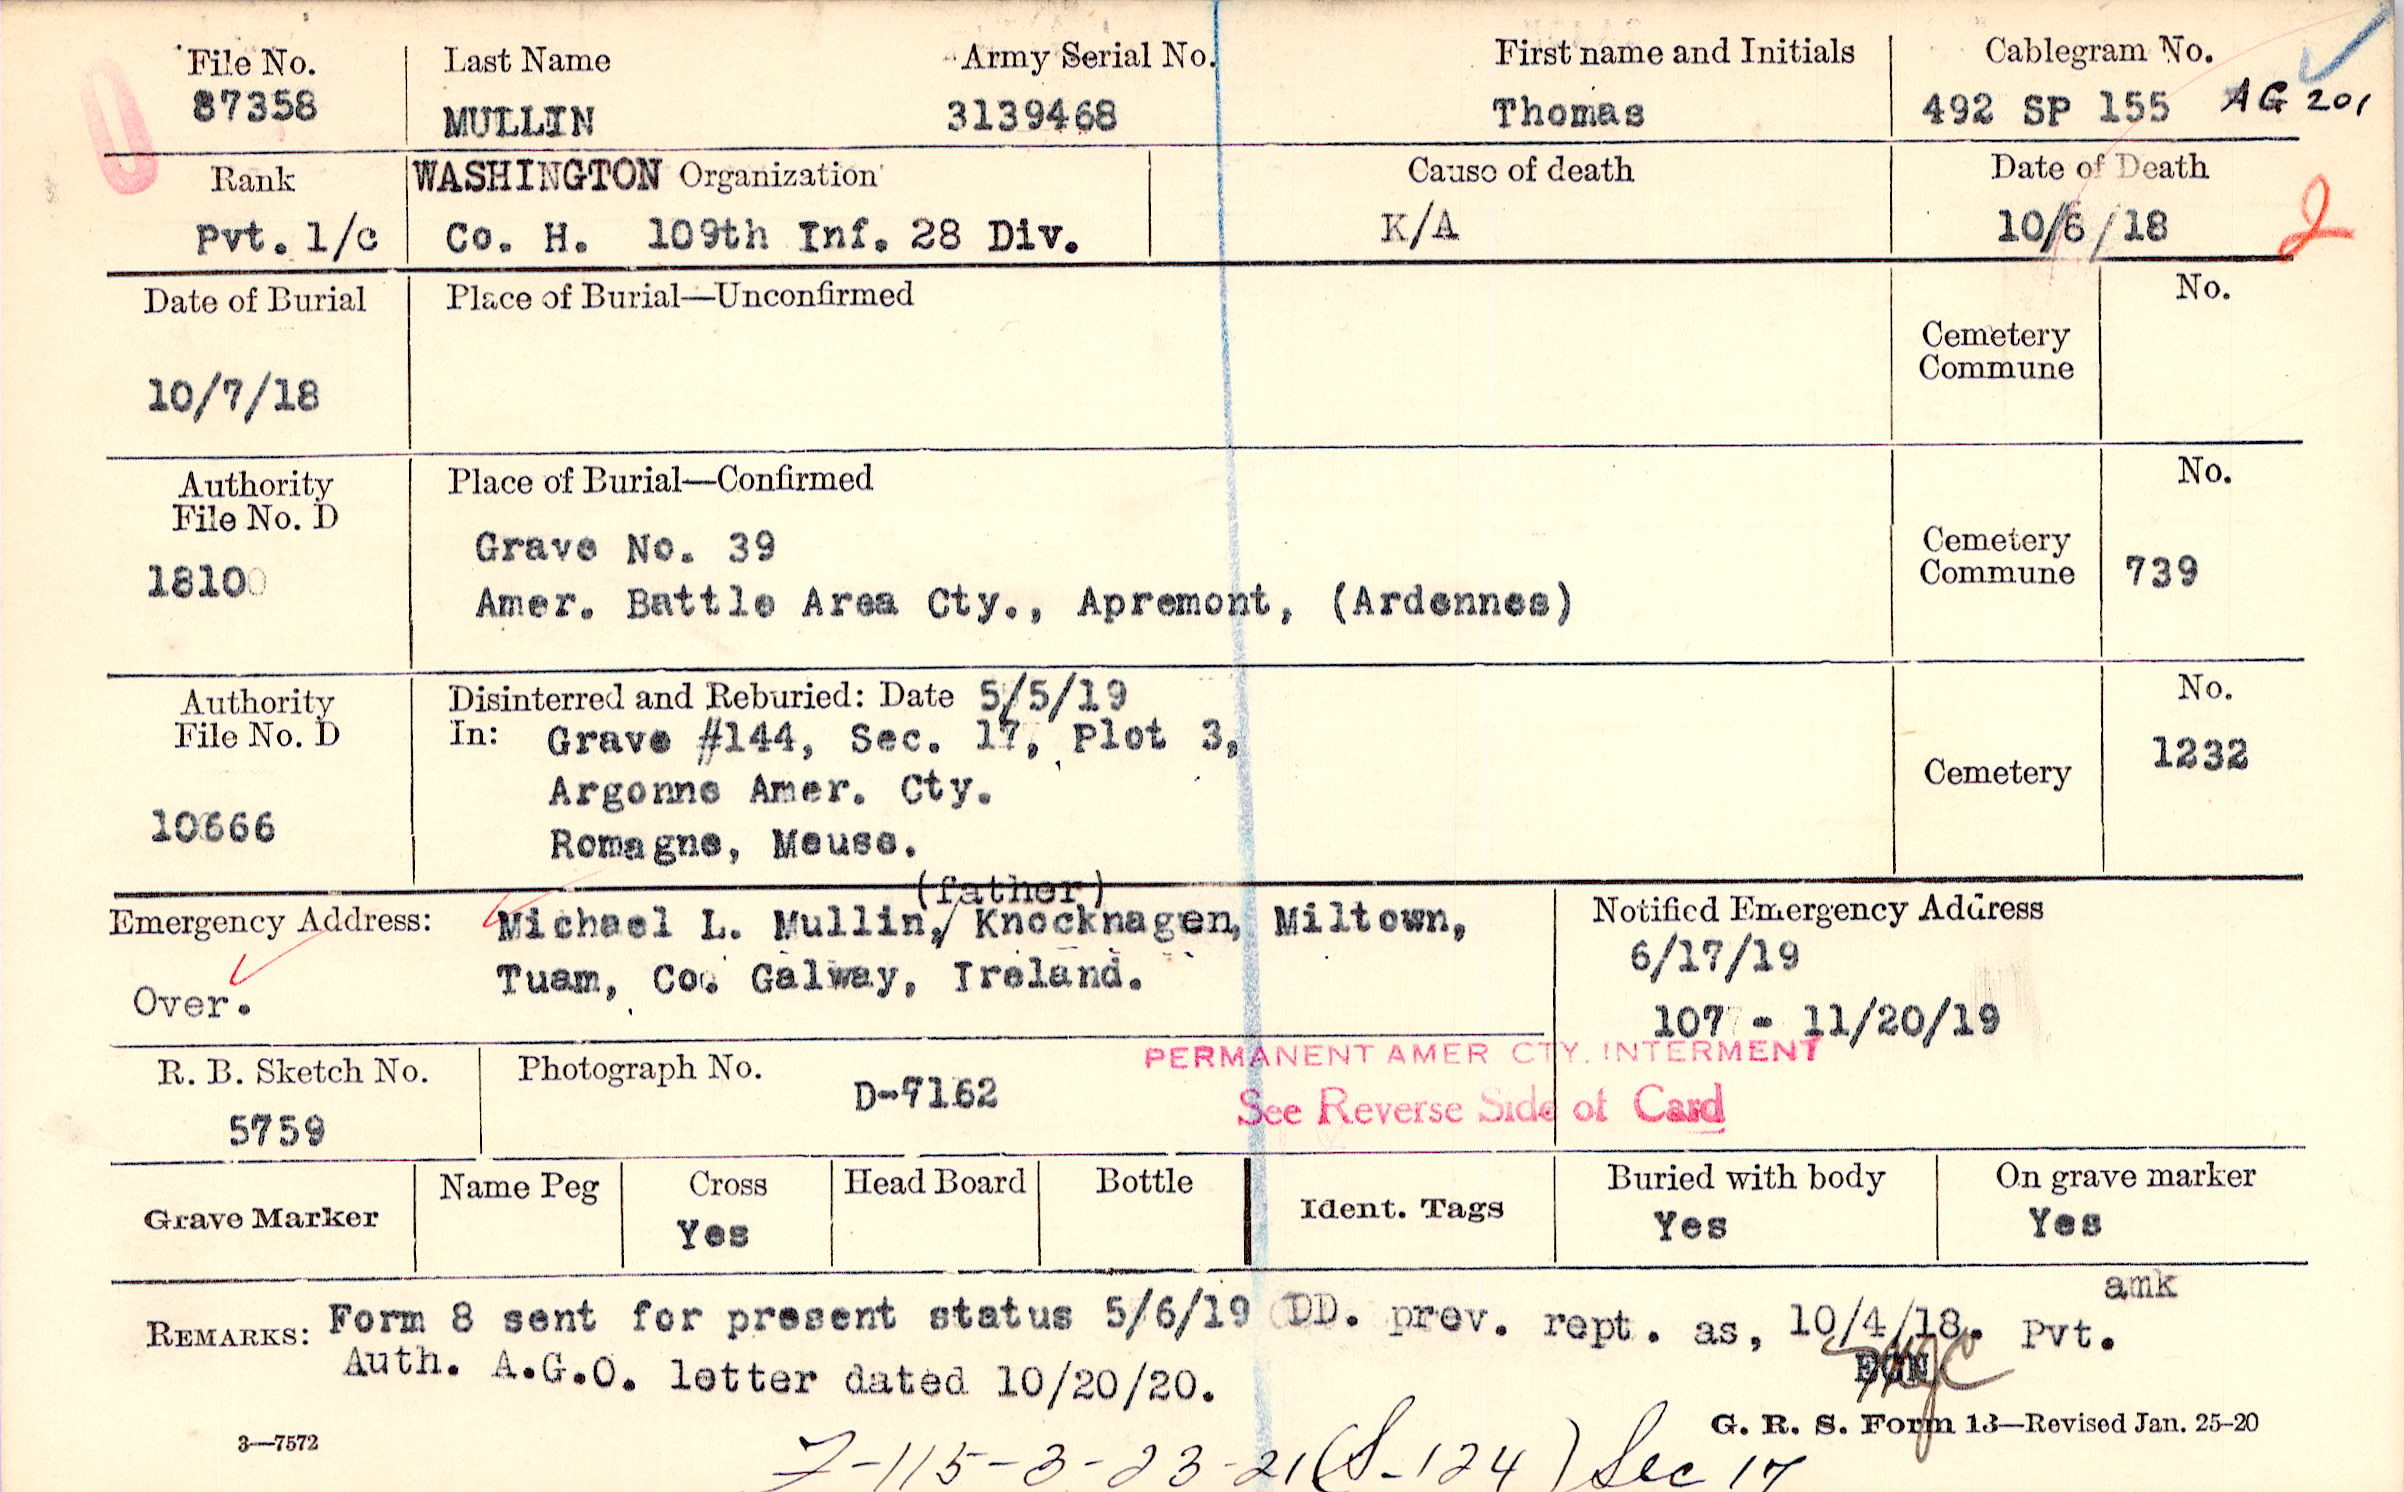 File No. Last Name Army Serial No. First name and Initials Cablegram No.
87358 MULLIN 3139468 Thomas 492 SP 155 AG 201
Rank WASHINGTON Organization Cause of death Date of Death
Pvt. 1/c Co. H. 109th Inf. 28 Div. K/A 10/6/18 2
Date of Burial Place of Burial—Unconfirmed No.
Cemetery
Commune
10/7/18
Authority Place of Burial—Confirmed No.
File No. D
Grave No. 39 Cemetery
18100 Commune 739
Amer. Battle Area Cty., Apremont, (Ardennes)
Authority Disinterred and Reburied: Date 5/5/19 No.
File No. D In: Grave #144, Sec. 17, Plot 3,
1232
Argonne Amer. Cty. Cemetery
10666 Romagne, Meuse.
(father)
Emergency Address: Michael L. Mullin,/ Knocknagen, Miltown, Notified Emergency Address
6/17/19
Over. Tuam, Co. Galway, Ireland.
107 - 11/20/19
PERMANENT AMER CTY. INTERMENT
R. B. Sketch No. Photograph No. D-7162
See Reverse Side of Card
5759
Grave Marker Name Peg Cross Head Board Bottle Ident. Tags Buried with body On grave marker
Yes Yes Yes
amk
REMARKS: Form 8 sent for present status 5/6/19 DD. prev. rept. as, 10/4/18. Pvt.
Auth. A.G.O. letter dated 10/20/20.
G. R. S. Form 13—Revised Jan. 25-20
3—7572
7-115-3-23-21(S-124) Sec 17